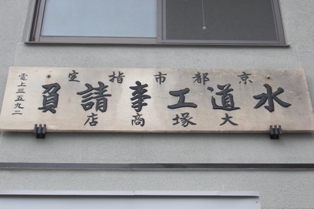 京都市指定
水道工事請負
大塚商店
電上三五九二